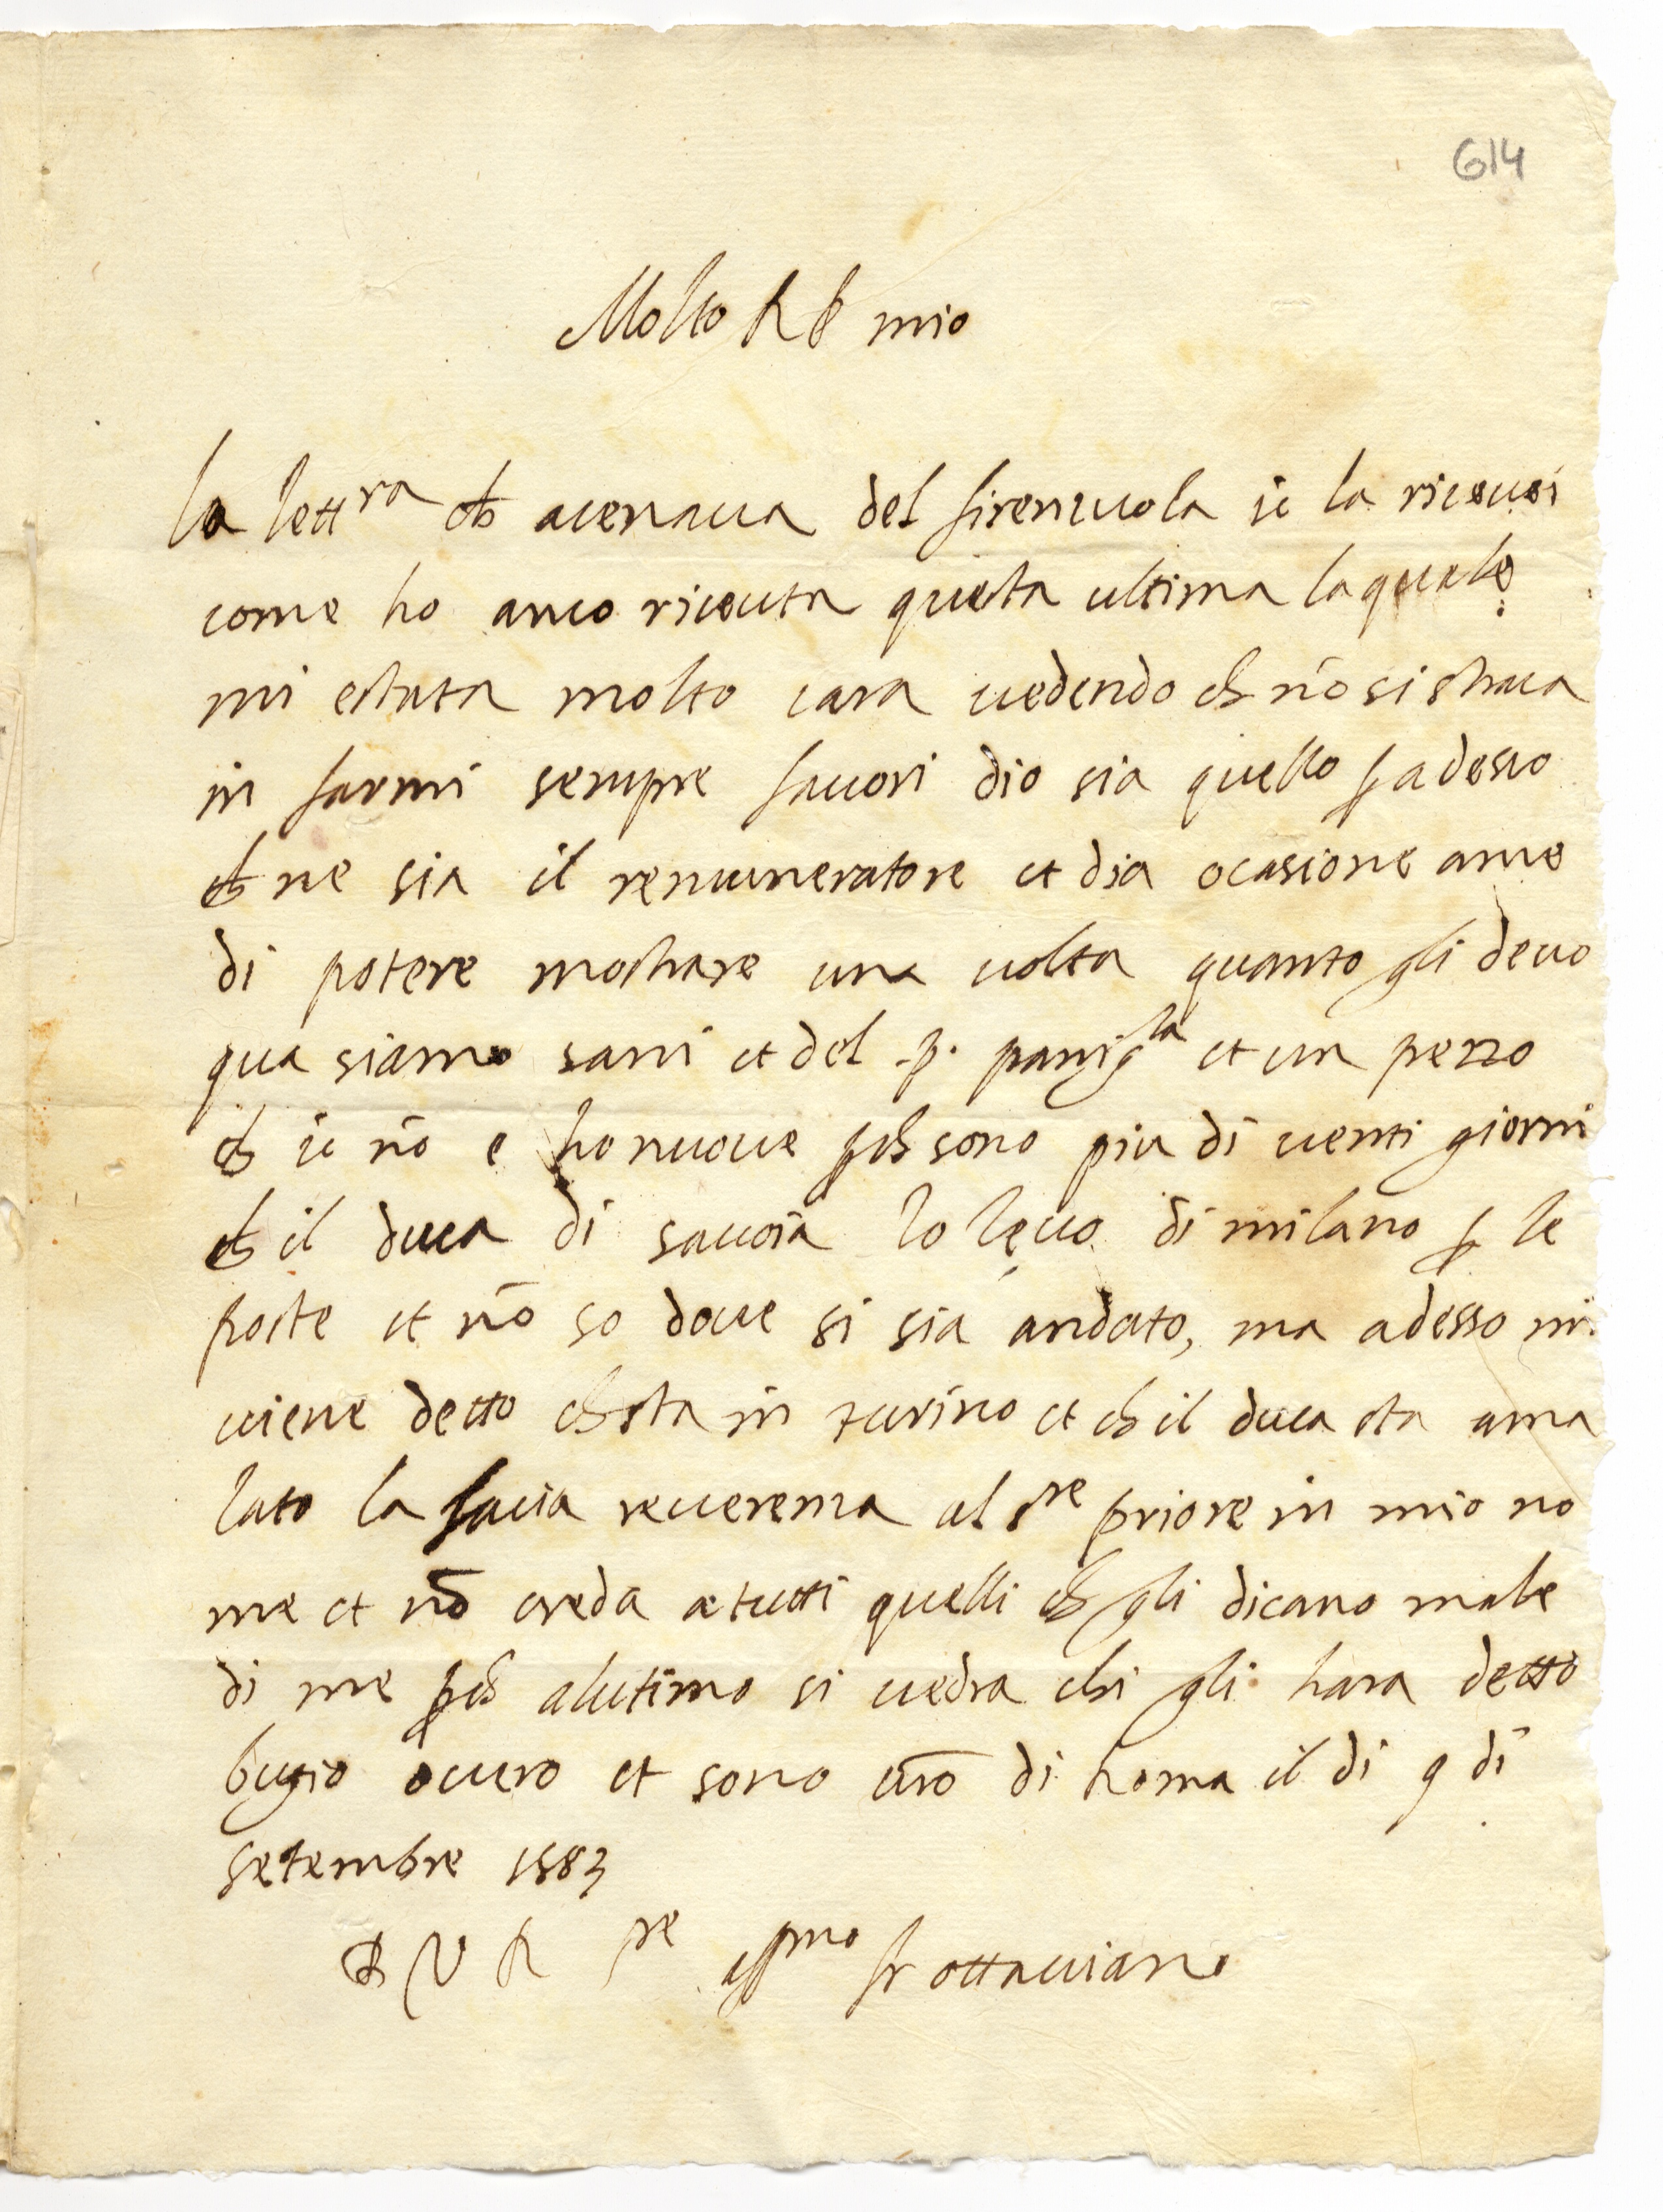 614
Molto R P mio
la lettra ch avenava del firenzuola io la ricevei
come ho anco riceuta questa ultima laquale
mi estata molto cara vedendo ch nō si straca
in farmi sempre favori dio sia quello p adesso
ch ne sia il remuneratore et dia ocasione ame
di potere mostrare una volta quanto gli devo
qua siamo sani et del .p. panigla et un pezzo
ch io nō e ho nuove pch sono piu di venti giorni
ch il duca di savoia lo levo di milano p le
poste et nō so dove si sia andato, ma adesso mi
viene detto ch sta in turino et ch il duca sta ama
lato la facia reverenza al sre priore in mio no
me et nō creda a tutti quelli ch gli dicano male
di me pch alultimo si vedra chi gli hara detto
bugio overo et sono vro di Roma il di 9 di
setembre 1583
D V R re affmo fr ottaviano